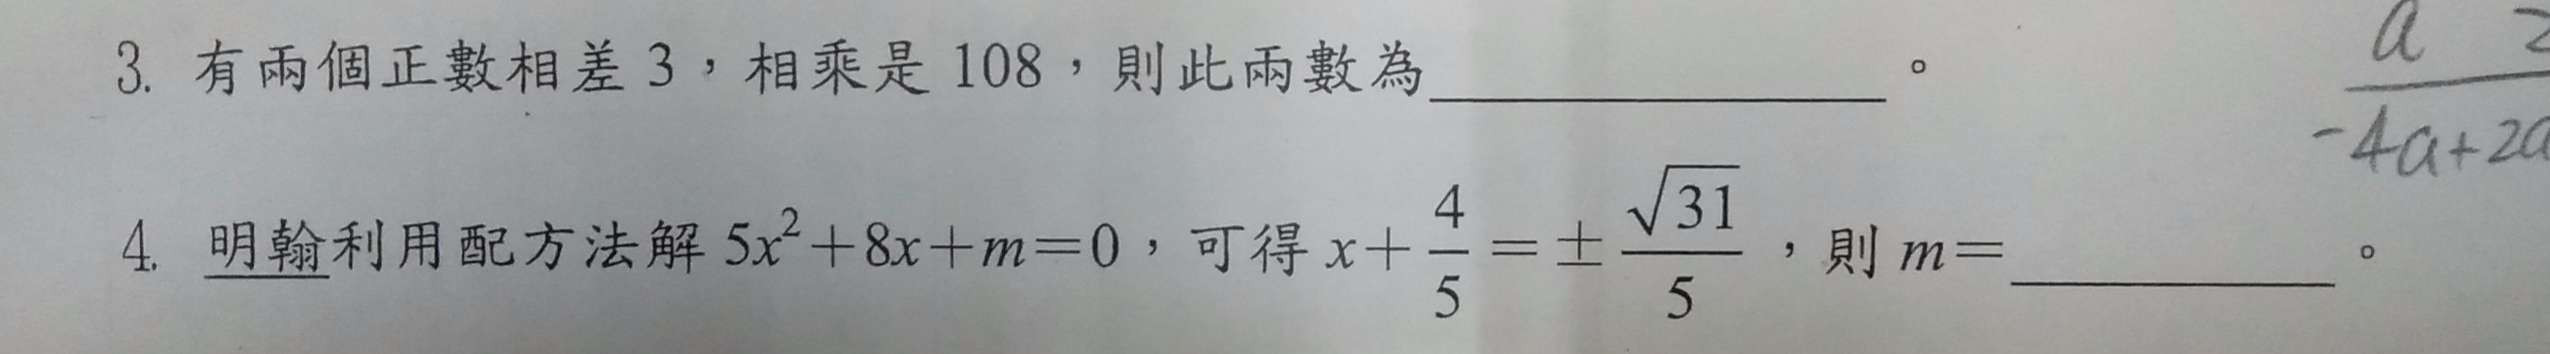 3. 有兩個正數相差 3，相乘是 108，則此兩數為＿＿＿＿＿＿＿。
a 2
-4a+2a
4. 明翰利用配方法解 5x²+8x+m=0，可得 x+4/5=±√31/5，則 m=＿＿＿＿＿。